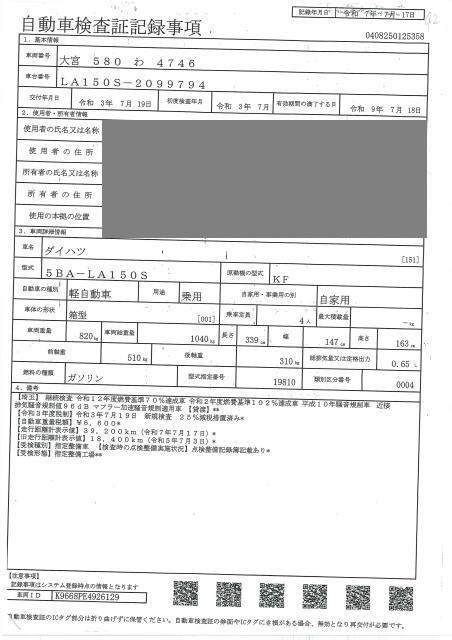 自動車検査証記録事項
記録年月日 令和 7年 7月 17日
0408250125358
1. 基本情報
車両番号 大宮 580 わ 4746
車台番号 LA150S-2099794
交付年月日 令和 3年 7月 19日 初度検査年月 令和 3年 7月 有効期間の満了する日 令和 9年 7月 18日
2. 使用者・所有者情報
使用者の氏名又は名称
使用者の住所
所有者の氏名又は名称
所有者の住所
使用の本拠の位置
3. 車両詳細情報
車名 ダイハツ [151]
型式 5BA-LA150S 原動機の型式 KF
自動車の種別 軽自動車 用途 乗用 自家用・事業用の別 自家用
車体の形状 箱型 [001] 乗車定員 4人 最大積載量 -kg
車両重量 820kg 車両総重量 1040kg 長さ 339cm 幅 147cm 高さ 163cm
前軸重 510kg 後軸重 310kg 総排気量又は定格出力 0.65 L
燃料の種類 ガソリン 型式指定番号 19810 類別区分番号 0004
4. 備考
【埼玉】 継続検査 令和12年度燃費基準70%達成車 令和2年度燃費基準102%達成車 平成10年騒音規制車 近接
排気騒音規制値96dB マフラー加速騒音規制適用車 【貸渡】**
【令和3年度税制】令和3年7月19日 新規検査 25%減税措置済み*
【自動車重量税額】¥6,600*
【走行距離計表示値】39,200km(令和7年7月17日)*
【旧走行距離計表示値】18,400km(令和5年7月3日)*
【受検種別】指定整備車 【検査時の点検整備実施状況】点検整備記録簿記載あり*
【受検形態】指定整備工場**
【注意事項】
記録事項はシステム登録時点の情報となります
車両ID K9668PE4926129
自動車検査証のICタグ部分は折り曲げずに保管ください。自動車検査証の券面やICタグにき損がある場合、無効となり再交付が必要です。